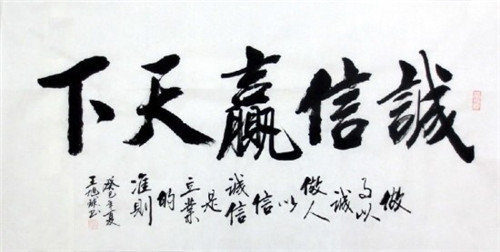 誠信贏天下
做
事以
誠
做人
以
信
誠信
是
立業
的
准則
癸巳年夏